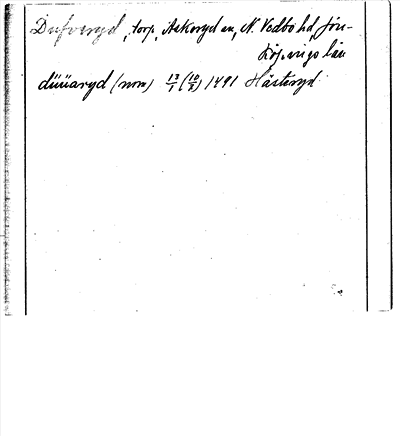 Dufveryd, torp, Askeryd sn, N. Vedbo hd, Jön-
köpings län
düüaryd (nom) 13/1 (10/2) 1491 Hästeryd